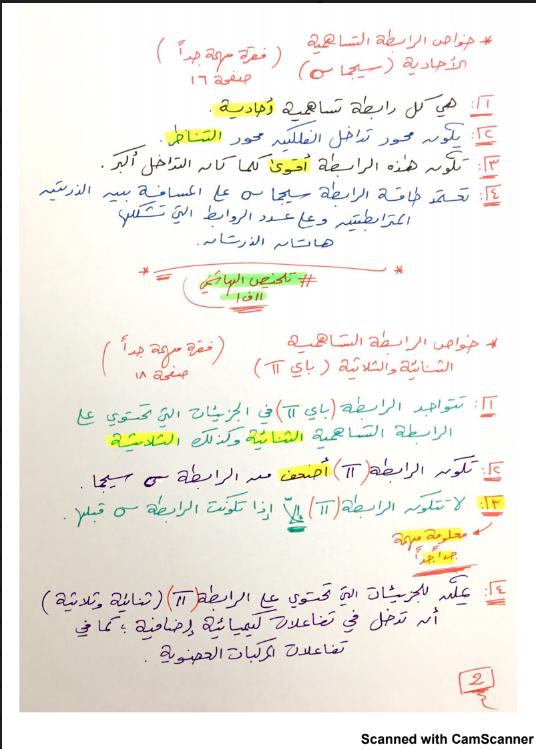 * خواص الرابطة التساهمية
الأحادية (سيجما σ) (فقرة مهمة جداً
صفحة ١٦)
١: هي كل رابطة تساهمية أحادية.
٢: يكون محور تداخل الفلكين محور التناظر.
٣: تكون هذه الرابطة أقوى كلما كان التداخل أكبر.
٤: تعتمد طاقة الرابطة سيجما σ على المسافة بين الذرتين
المترابطتين وعلى عدد الروابط التي تشكلها
هاتان الذرتان.
* *
# تلخيص الهاشمي
* خواص الرابطة التساهمية
الثنائية والثلاثية (باي π) (فقرة مهمة جداً
صفحة ١٨)
١: تتواجد الرابطة (باي π) في الجزيئات التي تحتوي على
الرابطة التساهمية الثنائية وكذلك الثلاثية
٢: تكون الرابطة (π) أضعف من الرابطة σ سيجما.
٣: لا تتكون الرابطة (π) إلّا إذا تكونت الرابطة σ قبلها.
معلومة مهمة
جداً جداً
٤: يمكن للجزيئات التي تحتوي على الرابطة (π) (ثنائية وثلاثية)
أن تدخل في تفاعلات كيميائية إضافية؛ كما في
تفاعلات المركبات العضوية.
2
Scanned with CamScanner